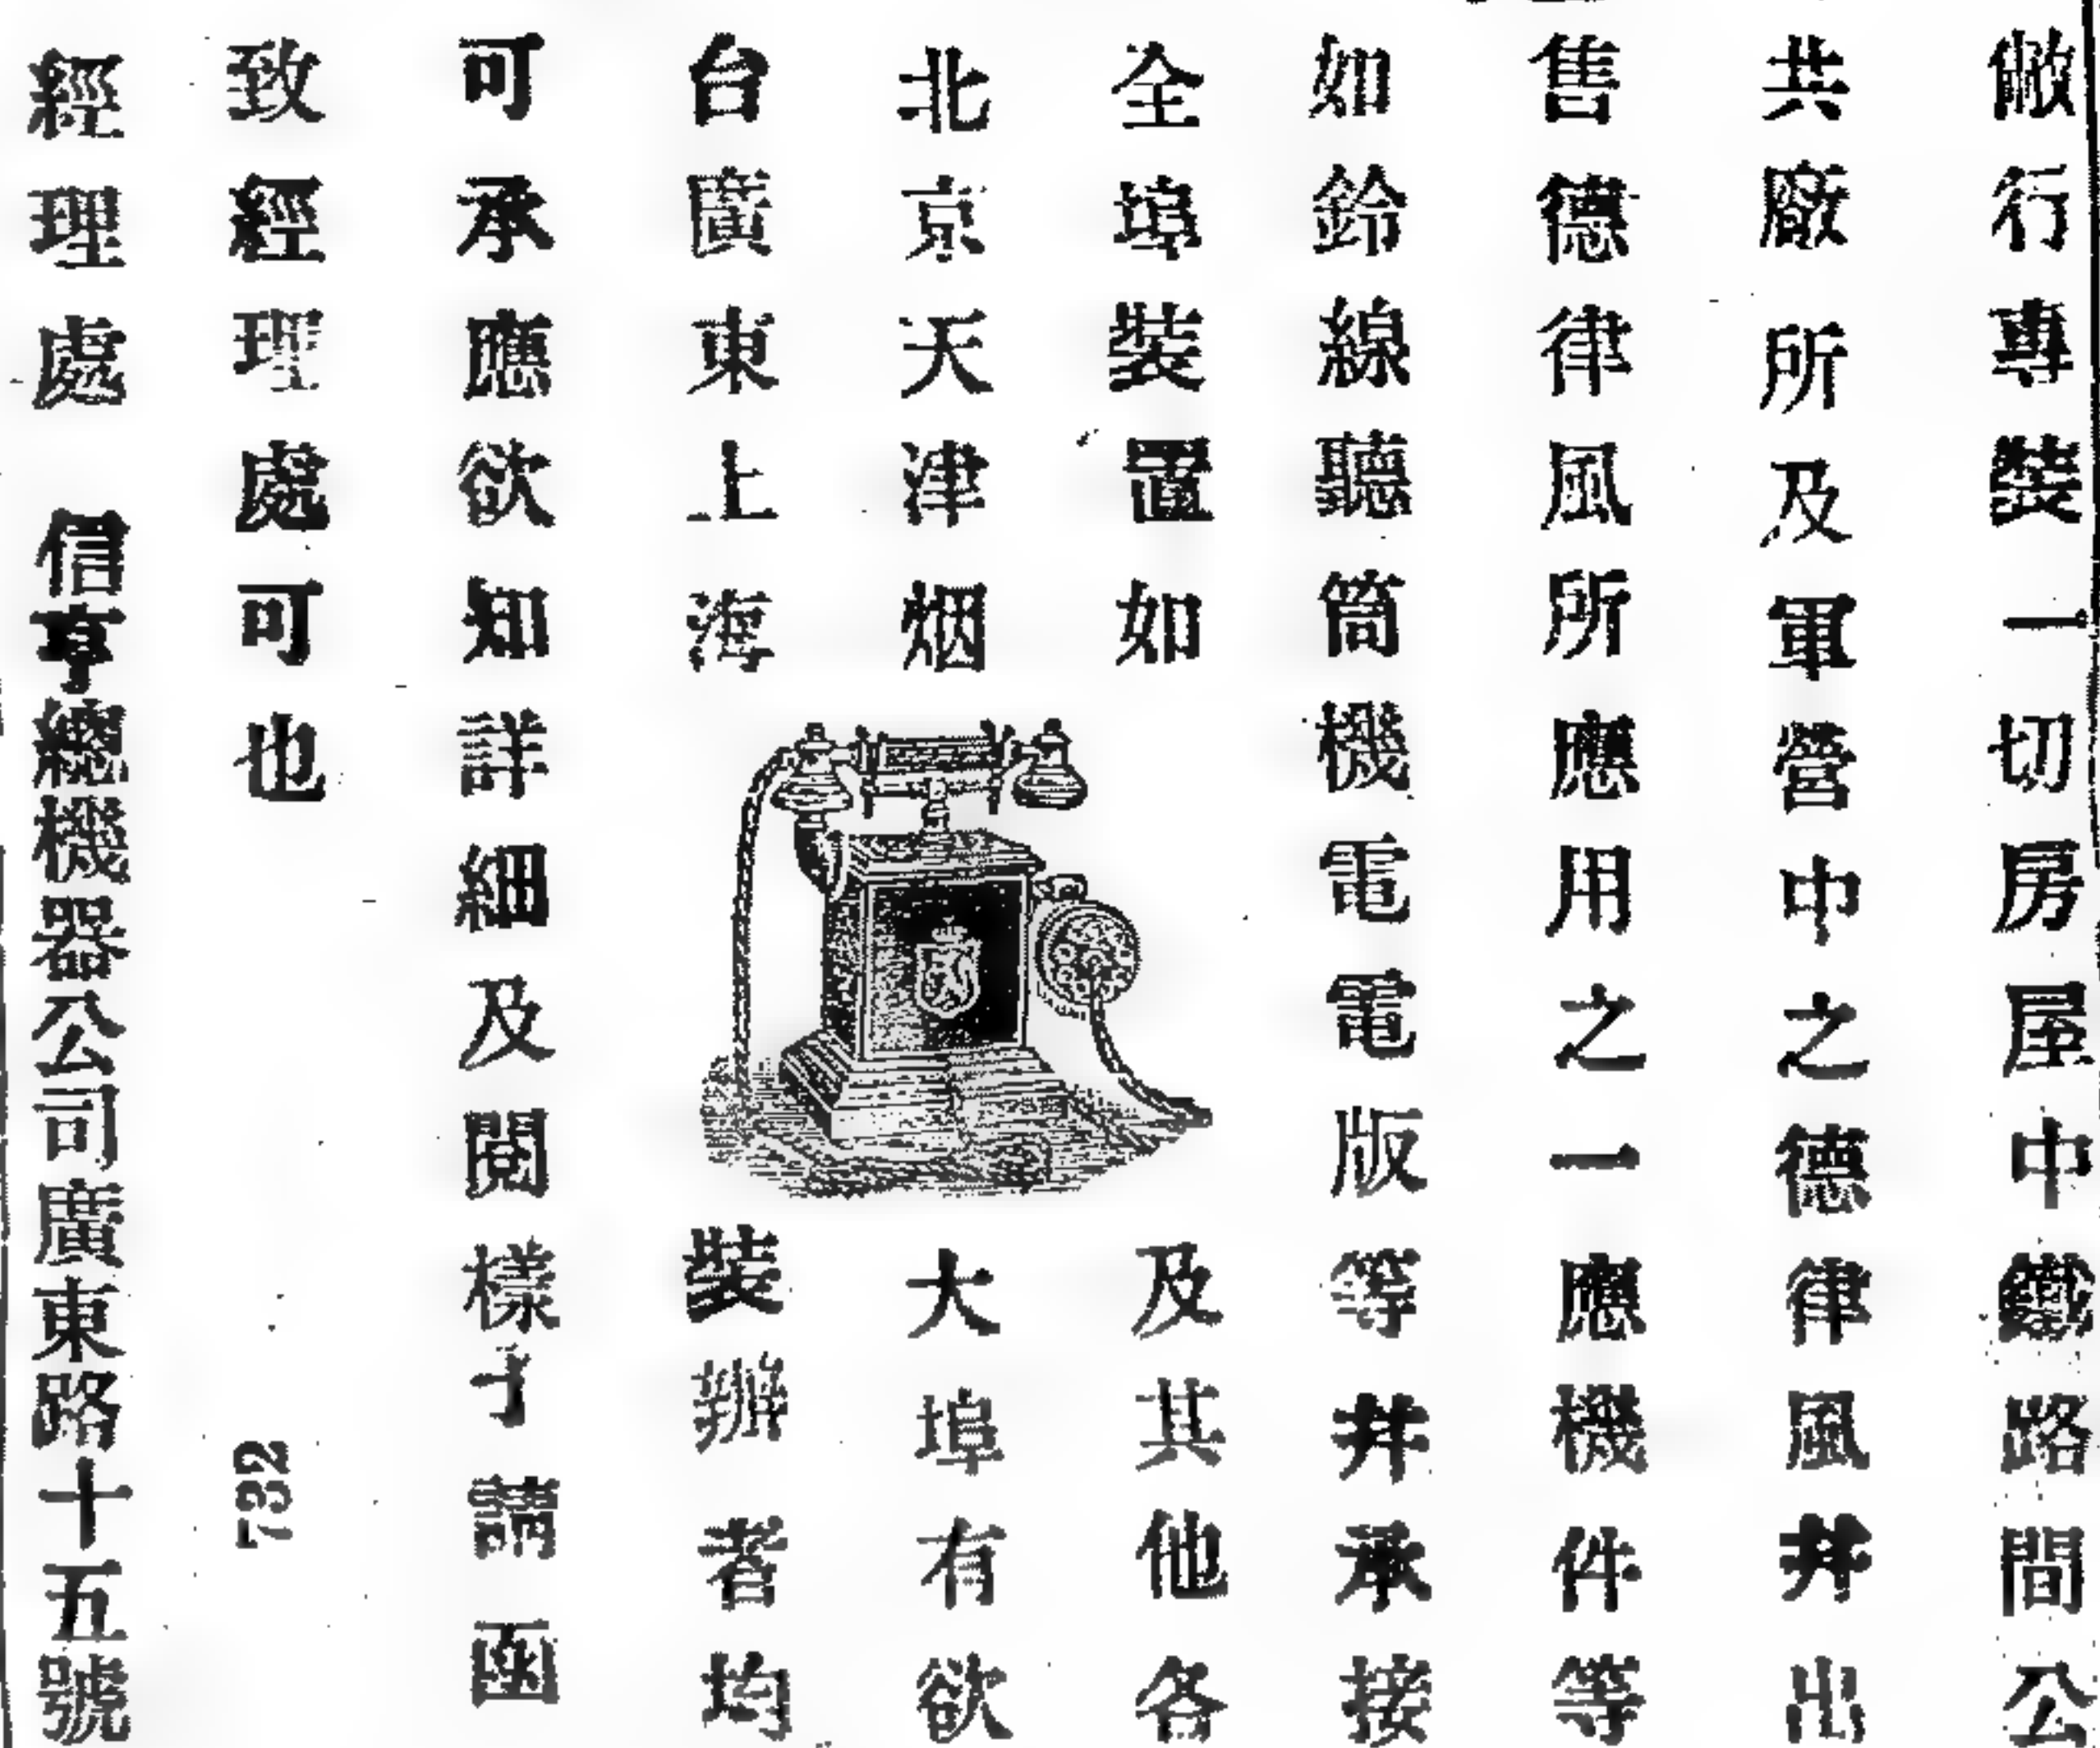 敝行專裝一切房屋中鐵路間公
共廠所及軍營中之德律風並出
售德律風所應用之一應機件等
如鈴線聽筒機電電版等並承接
全埠裝置如及其他各
北京天津烟大埠有欲
台廣東上海裝辦者均
可承應欲知詳細及閱樣子請函
致經理處可也
732
經理處 信亨總機器公司廣東路十五號